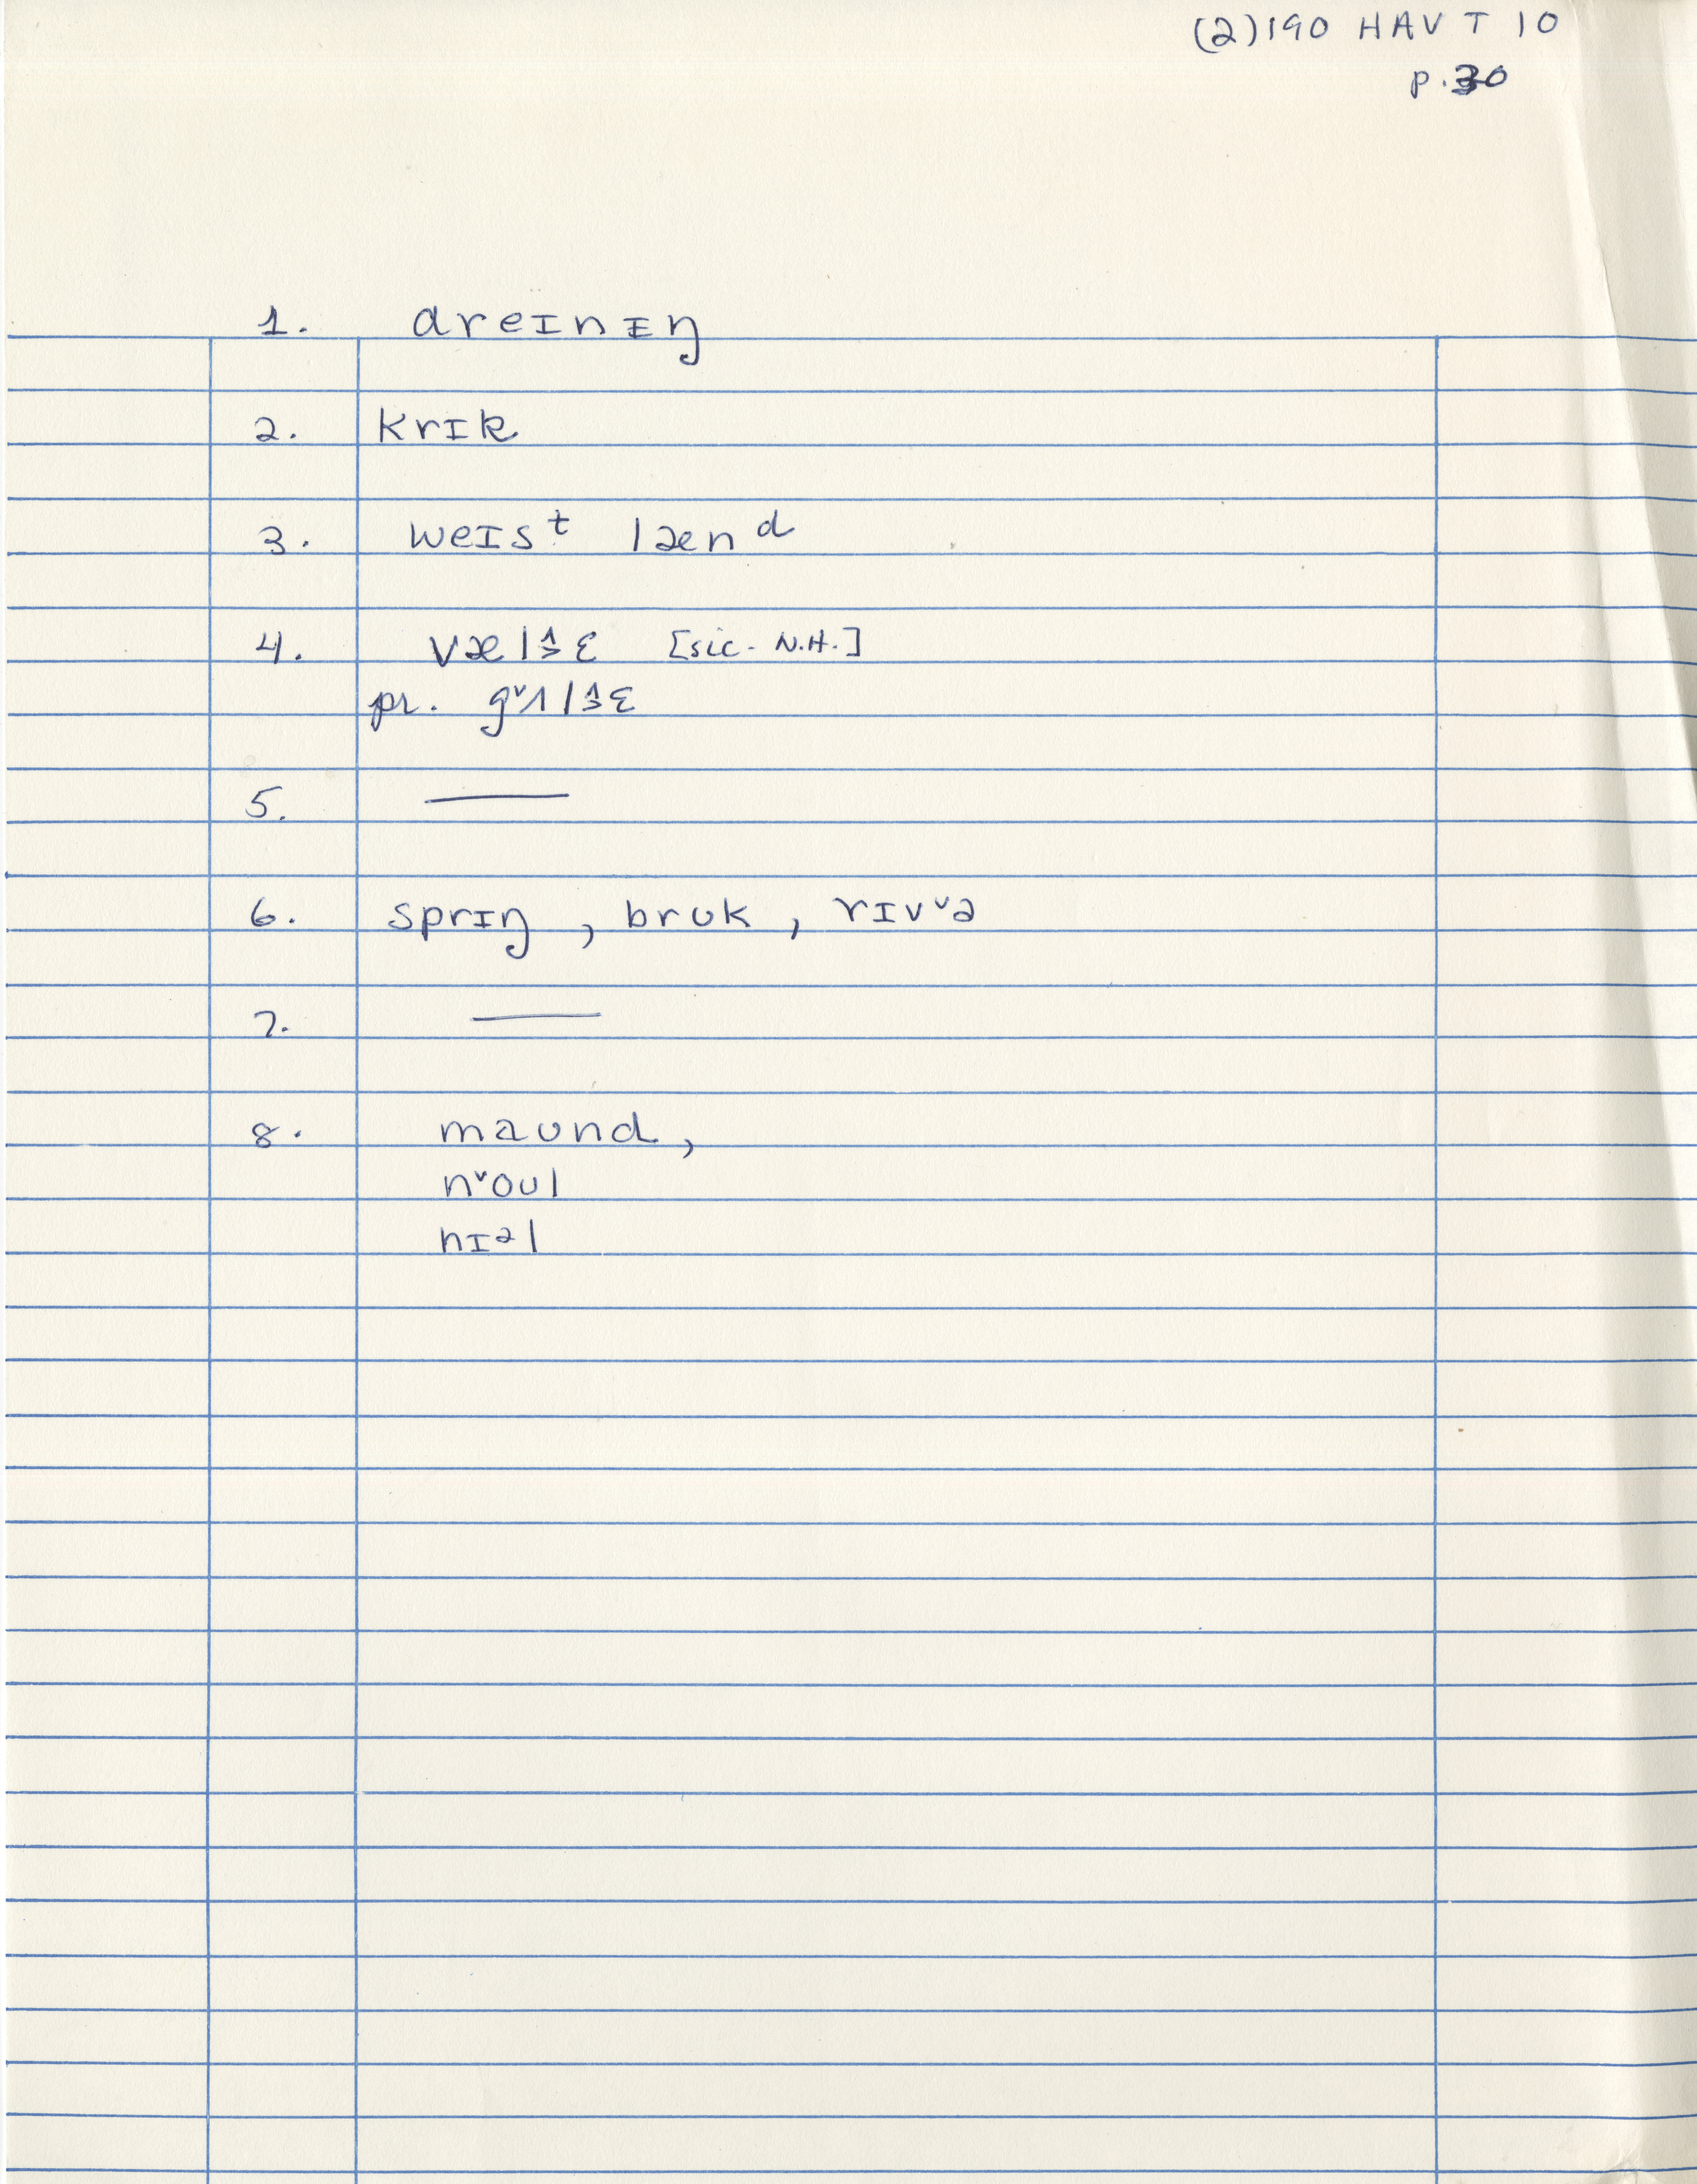 (2)190 HAV T 10
p.30
1. dreɪnɪŋ
2. krɪk
3. weɪsᵗ lænᵈ
4. [sic- N.H.]
pr.
5. —
6. sprɪŋ, brʊk, rɪvᵛə
7. —
8. maʊnd,
nᵛoʊl
nɪᵊl